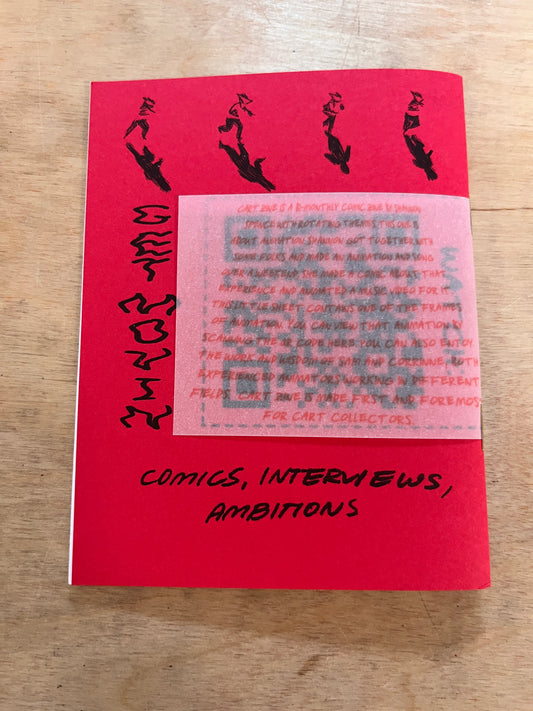 CART ZINE IS A BI-MONTHLY COMIC ZINE BY SHANNON
SPENCE WITH ROTATING THEMES. THIS ONE IS
ABOUT ANIMATION. SHANNON GOT TOGETHER WITH
SOME FOLKS AND MADE AN ANIMATION AND SONG
OVER A WEEKEND. SHE MADE A COMIC ABOUT THAT
EXPERIENCE AND ANIMATED A MUSIC VIDEO FOR IT.
THIS LITTLE SHEET CONTAINS ONE OF THE FRAMES
OF ANIMATION. YOU CAN VIEW THAT ANIMATION BY
SCANNING THE QR CODE HERE. YOU CAN ALSO ENJOY
THE WORK AND WISDOM OF AND CORRINNE, BOTH
EXPERIENCED ANIMATORS WORKING IN DIFFERENT
FIELDS. CART ZINE IS MADE FIRST AND FOREMOS
FOR CART COLLECTORS.
COMICS, INTERVIEWS,
AMBITIONS